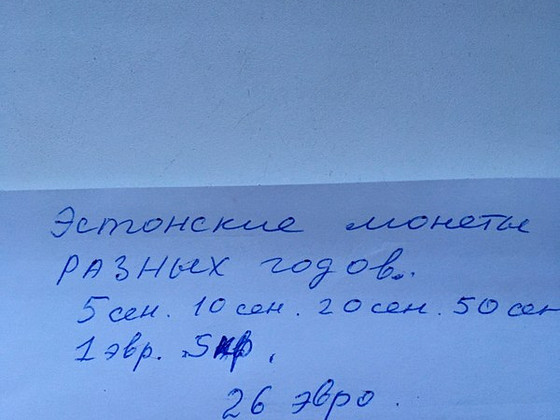 Эстонские монеты
РАЗНЫХ годов..
5 сен. 10 сен. 20 сен. 50 сен
1 эвр. 5кр.
26 эвро.